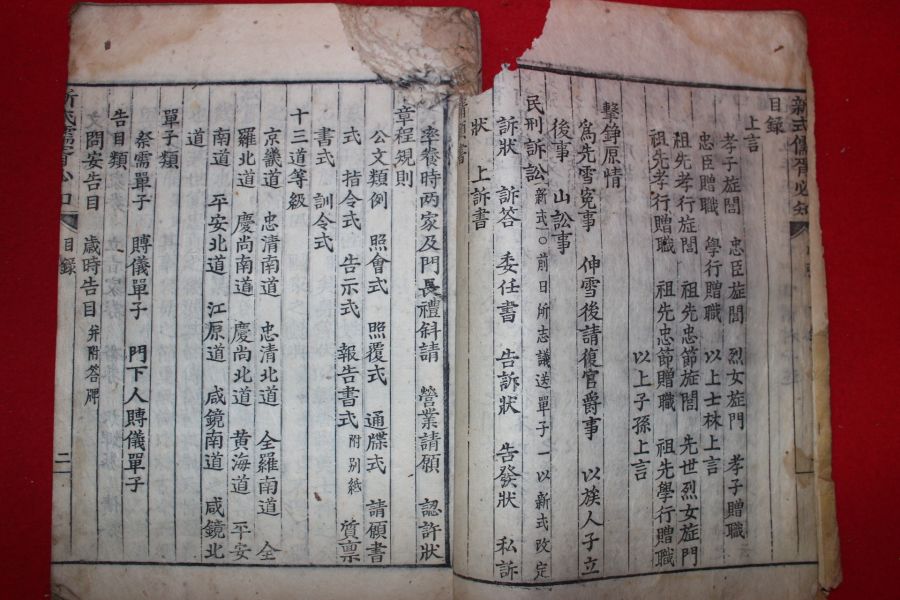 新式儒胥必知
目錄
上言
孝子旌閭 忠臣旌閭 烈女旌門 孝子贈職
忠臣贈職 學行贈職 以上士林上言
祖先孝行旌閭 祖先忠節旌閭 先世烈女旌門
祖先孝行贈職 祖先忠節贈職 祖先學行贈職
以上子孫上言
擊錚原情
爲先雪寃事 伸雪後請復官爵事 以族人子立
後事 山訟事
民刑訴訟 新式○前日所志議送單子一以新式改定
訴狀 訴答 委任書 告訴狀 告發狀 私訴
狀 上訴書
請願書
率養時兩家及門長禮斜請 營業請願 認許狀
章程規則
公文類例 照會式 照覆式 通牒式 請願書
式 指令式 告示式 報告書式 附別紙 質稟
書式 訓令式
十三道等級
京畿道 忠清南道 忠清北道 全羅南道 全
羅北道 慶尚南道 慶尚北道 黄海道 平安
南道 平安北道 江原道 咸鏡南道 咸鏡北
道
單子類
祭需單子 賻儀單子 門下人賻儀單子
告目類
問安告目 歲時告目 幷附答牌
新式儒胥必知 目錄 二